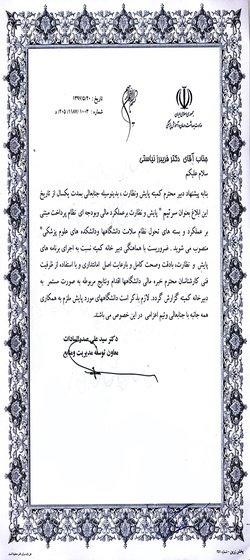 جمهوری اسلامی ایران
وزارت بهداشت، درمان و آموزش پزشکی
تاریخ : ۱۳۹۷/۵/۲۰
شماره : ۱۰۰۳/۱۱۸۷/۲۰۵/د
جناب آقای دکتر فریبرز نیاستی
سلام علیکم
بنا به پیشنهاد دبیر محترم کمیته پایش ونظارت ، بدینوسیله جنابعالی بمدت یکسال از تاریخ
این ابلاغ بعنوان سرتیم " پایش و نظارت برعملکرد مالی وبودجه ای نظام پرداخت مبتنی
بر عملکرد و بسته های تحول نظام سلامت دانشگاهها ودانشکده های علوم پزشکی"
منصوب می شوید . ضروریست با هماهنگی دبیر خانه کمیته نسبت به اجرای برنامه های
پایش و نظارت، بادقت وصحت کامل و بارعایت اصل امانتداری و با استفاده از ظرفیت
فنی کارشناسان محترم خبره مالی دانشگاهها اقدام ونتایج مربوطه به صورت مستمر به
دبیرخانه کمیته گزارش گردد. لازم بذکر است دانشگاههای مورد پایش ملزم به همکاری
همه جانبه با جنابعالی وتیم اعزامی در این خصوص می باشند.
دکتر سید علی صدرالسادات
معاون توسعه مدیریت ومنابع